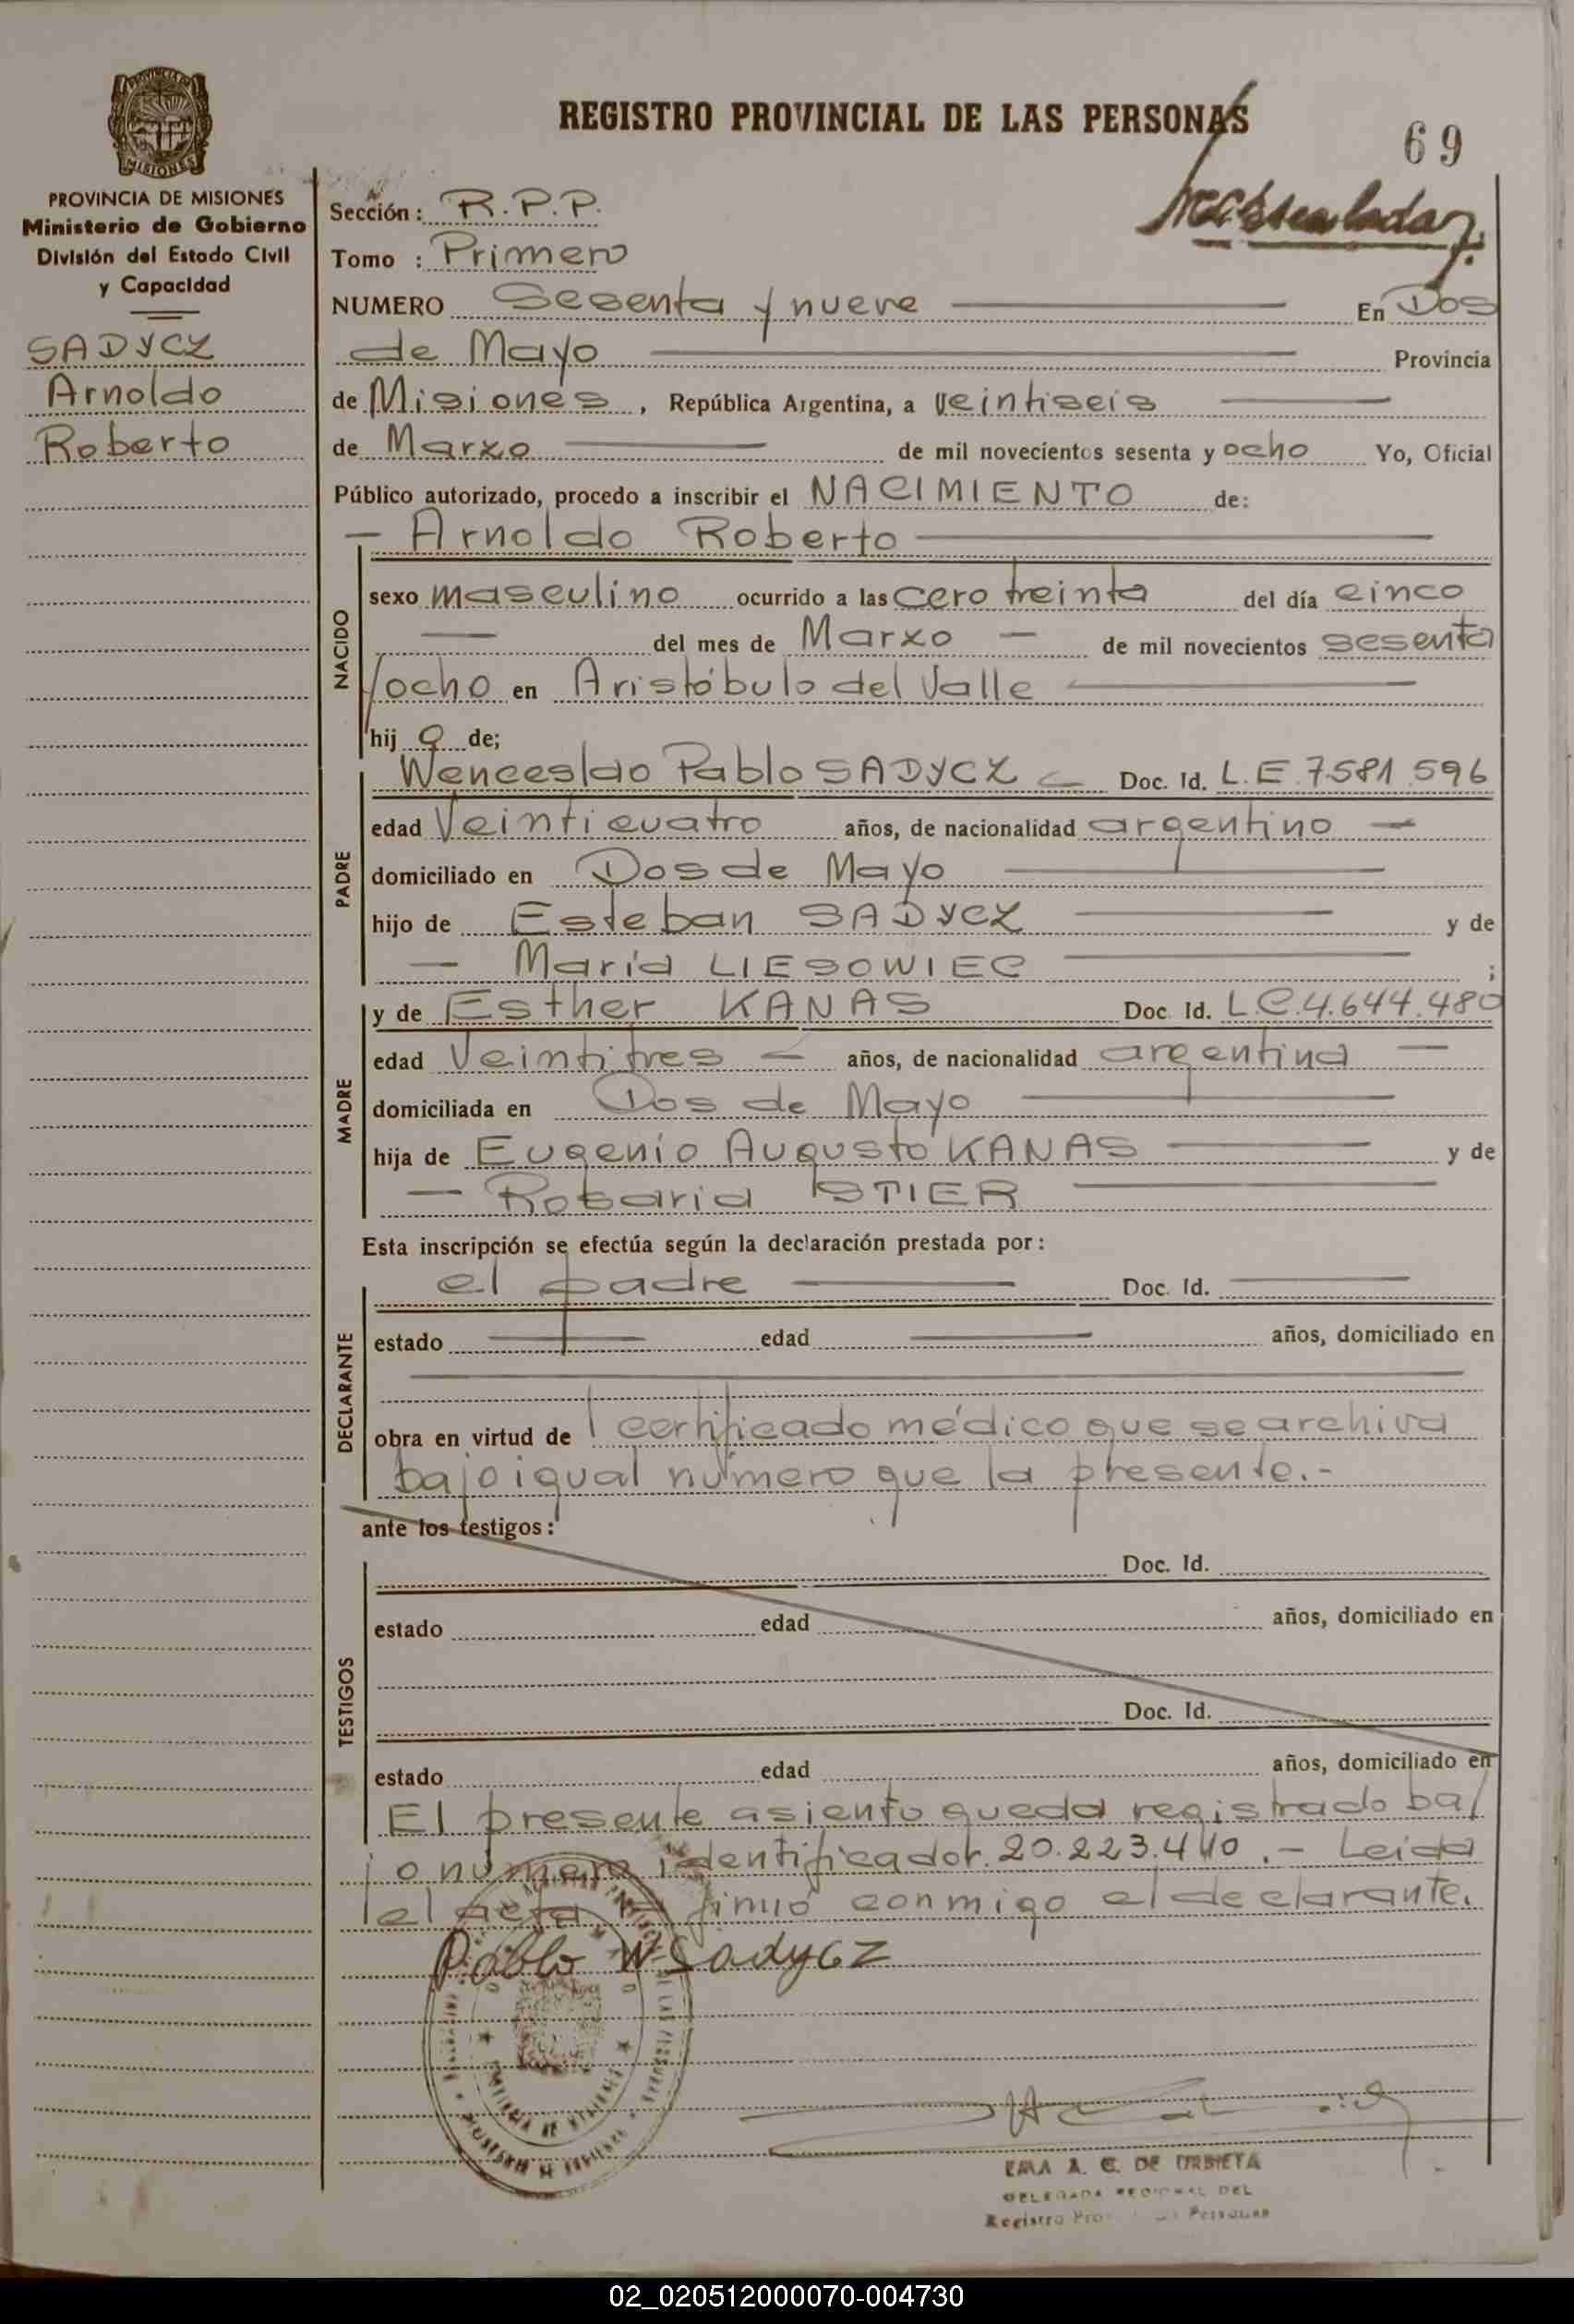 REGISTRO PROVINCIAL DE LAS PERSONAS
69
MISIONES
PROVINCIA DE MISIONES
Ministerio de Gobierno
División del Estado Civil
y Capacidad
SADYCZ
Arnoldo
Roberto
Sección : R.P.P.
Tomo : Primero
NUMERO Sesenta y nueve En Dos
de Mayo Provincia
de Misiones , República Argentina, a veintiseis
de Marzo de mil novecientos sesenta y ocho Yo, Oficial
Público autorizado, procedo a inscribir el NACIMIENTO de:
- Arnoldo Roberto
NACIDO
sexo masculino ocurrido a las cero treinta del día cinco
del mes de Marzo - de mil novecientos sesenta
y ocho en Aristóbulo del Valle
hij o de;
PADRE
Wenceslao Pablo SADYCZ Doc. Id. L.E 7.581.596
edad Veinticuatro años, de nacionalidad argentino -
domiciliado en Dos de Mayo
hijo de Esteban SADYCZ y de
- María LIESOWIEC ;
MADRE
y de Esther KANAS Doc. Id. L.C.4.644.480
edad Veintitres - años, de nacionalidad argentina -
domiciliada en Dos de Mayo
hija de Eugenio Augusto KANAS y de
- Rosaria STIER
Esta inscripción se efectúa según la declaración prestada por:
DECLARANTE
el padre Doc. Id.
estado edad años, domiciliado en
obra en virtud de 1 certificado médico que se archiva
bajo igual número que la presente.-
ante los testigos:
TESTIGOS
Doc. Id.
estado edad años, domiciliado en
Doc. Id.
estado edad años, domiciliado en
El presente asiento queda registrado ba/
jo número identificador 20.223.440.- Leida
el acta firmó conmigo el declarante.
Pablo W Sadycz
EMA A. C. DE URBIETA
DELEGADA REGIONAL DEL
Registro Personas
02_020512000070-004730